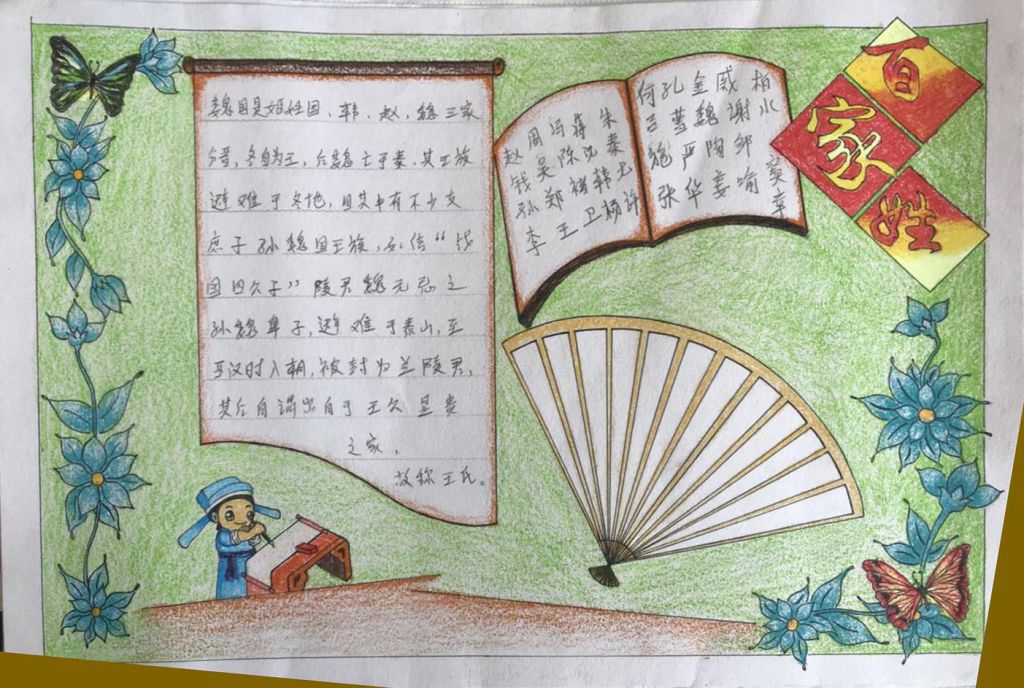 百家姓
魏国是姬姓国,韩、赵,魏三家
分晋,各自为王,后魏亡于秦,其王族
避难于各地,因其中有不少支
庶子孙魏国王族,如信“战
国四公子”陵君魏无忌之
孙魏卑子,避难于泰山,至
西汉时入朝,被封为兰陵君,
其后自谓出自于王公显贵
之家,
故称王氏。
赵 周 冯 蒋 朱
钱 吴 陈 沈 秦
孙 郑 褚 韩 尤
李 王 卫 杨 许
何 孔 金 戚 柏
吕 曹 魏 谢 水
严 陶 邹
张 华 姜 喻 章